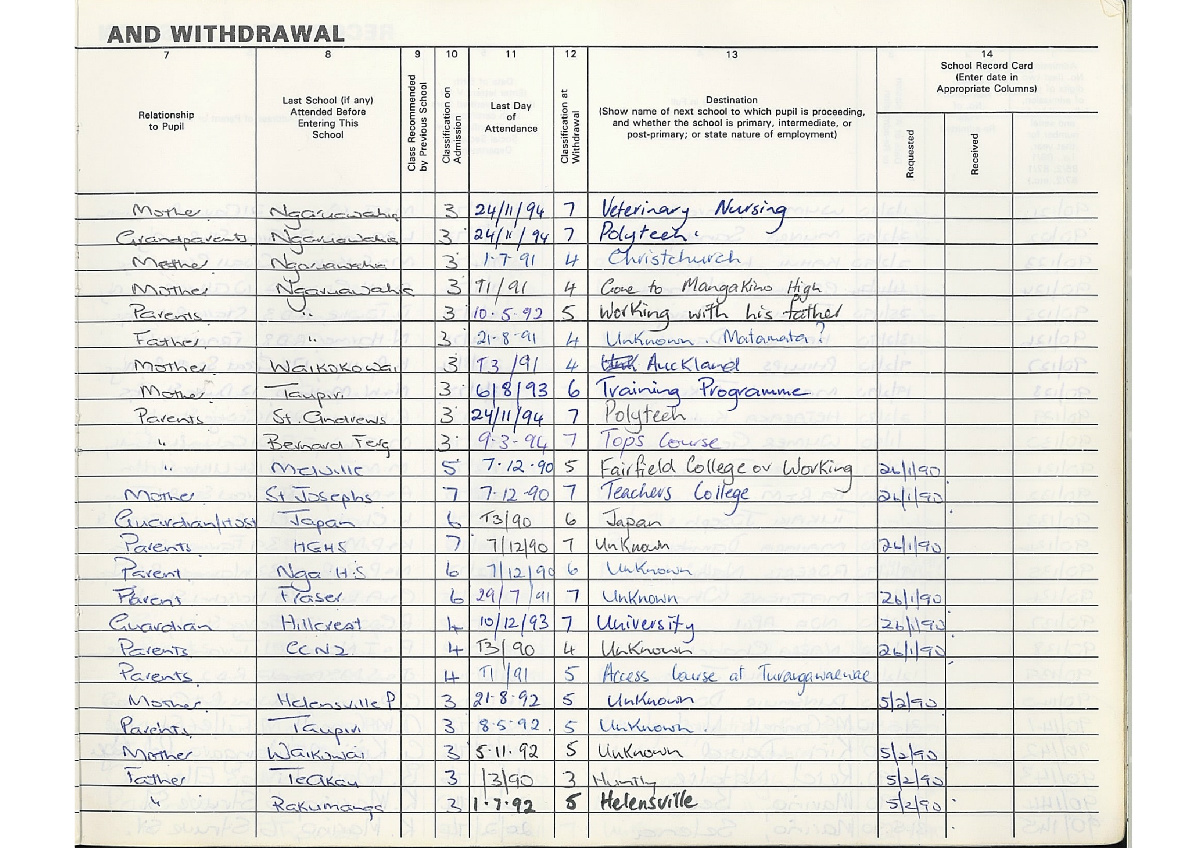 AND WITHDRAWAL
7 8 9 10 11 12 13 14
Relationship to Pupil
Last School (if any) Attended Before Entering This School
Class Recommended by Previous School
Classification on Admission
Last Day of Attendance
Classification at Withdrawal
Destination (Show name of next school to which pupil is proceeding, and whether the school is primary, intermediate, or post-primary; or state nature of employment)
School Record Card (Enter date in Appropriate Columns)
Requested
Received
Mother Ngaruawahia 3 24/11/94 7 Veterinary Nursing
Grandparents Ngaruawahia 3 24/11/94 7 Polytech.
Mother Ngaruawahia 3 1-7-91 4 Christchurch
Mother Ngaruawahia 3 T1/91 4 Gone to Mangakino High
Parents " 3 10.5.92 5 Working with his father
Father " 3 21-8-91 4 Unknown. Matamata?
Mother Waikokowai 3 T3/91 4 Auckland
Mother Taupiri 3 6/8/93 6 Training Programme
Parents St. Andrews 3 24/11/94 7 Polytech
" Bernard Ferg 3 9-3-94 7 Tops Course
" Melville 5 7.12.90 5 Fairfield College or Working 26/1/90
Mother St Josephs 7 7-12-90 7 Teachers College 26/1/90
Guardian/Host Japan 6 T3/90 6 Japan
Parents HGHS 7 7/12/90 7 Unknown 26/1/90
Parent Nga H.S 6 7/12/90 6 Unknown
Parent Fraser 6 29/7/91 7 Unknown 26/1/90
Guardian Hillcrest 4 10/12/93 7 University 26/1/90
Parents CCNZ 4 T3/90 4 Unknown 26/1/90
Parents 4 T1/91 5 Access Course at Turangawaewae
Mother Helensville P 3 21-8-92 5 Unknown 5/2/90
Parents Taupiri 3 8.5.92. 5 Unknown.
Mother Waikowai 3 5.11.92 5 Unknown 5/2/90
Father TeAkau 3 /3/90 3 Huntly 5/2/90
" Rakumanga 3 1.7.92 5 Helensville 5/2/90